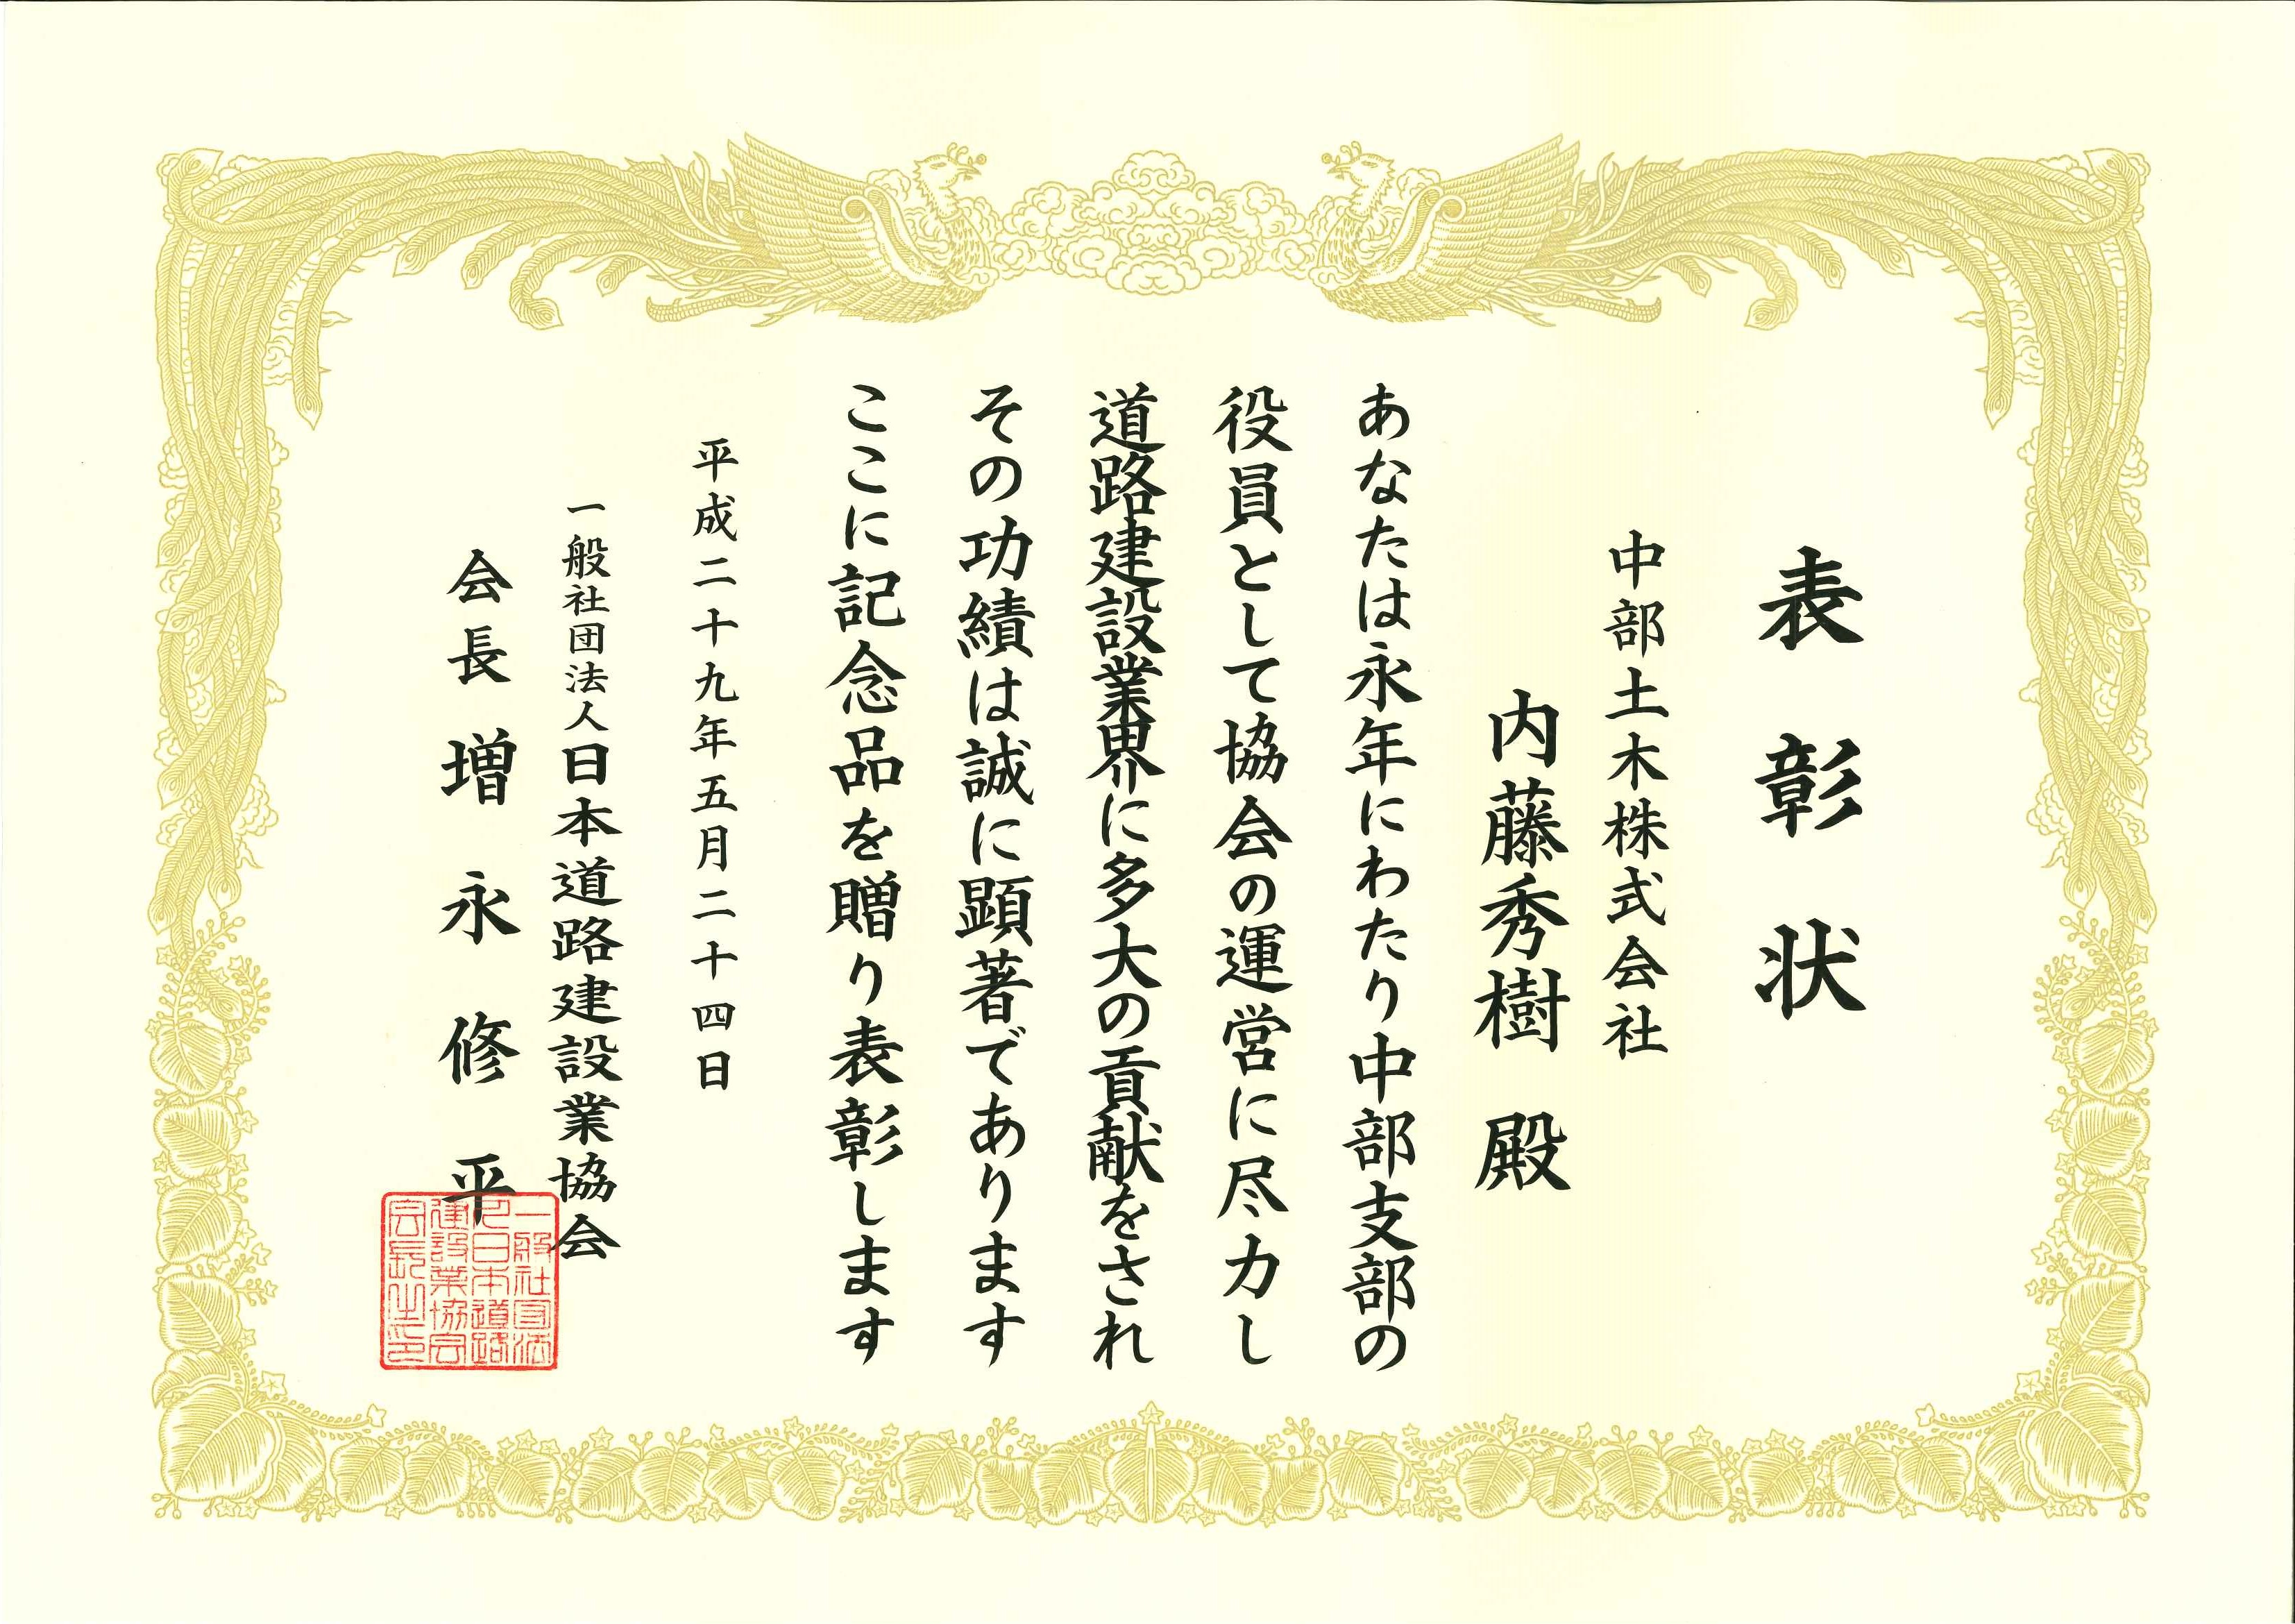 表彰状
中部土木株式会社
内藤秀樹 殿
あなたは永年にわたり中部支部の
役員として協会の運営に尽力し
道路建設業界に多大の貢献をされ
その功績は誠に顕著であります
ここに記念品を贈り表彰します
平成二十九年五月二十四日
一般社団法人日本道路建設業協会
会長 増永修平
一般社団法
人日本道路
建設業協会
会長之印